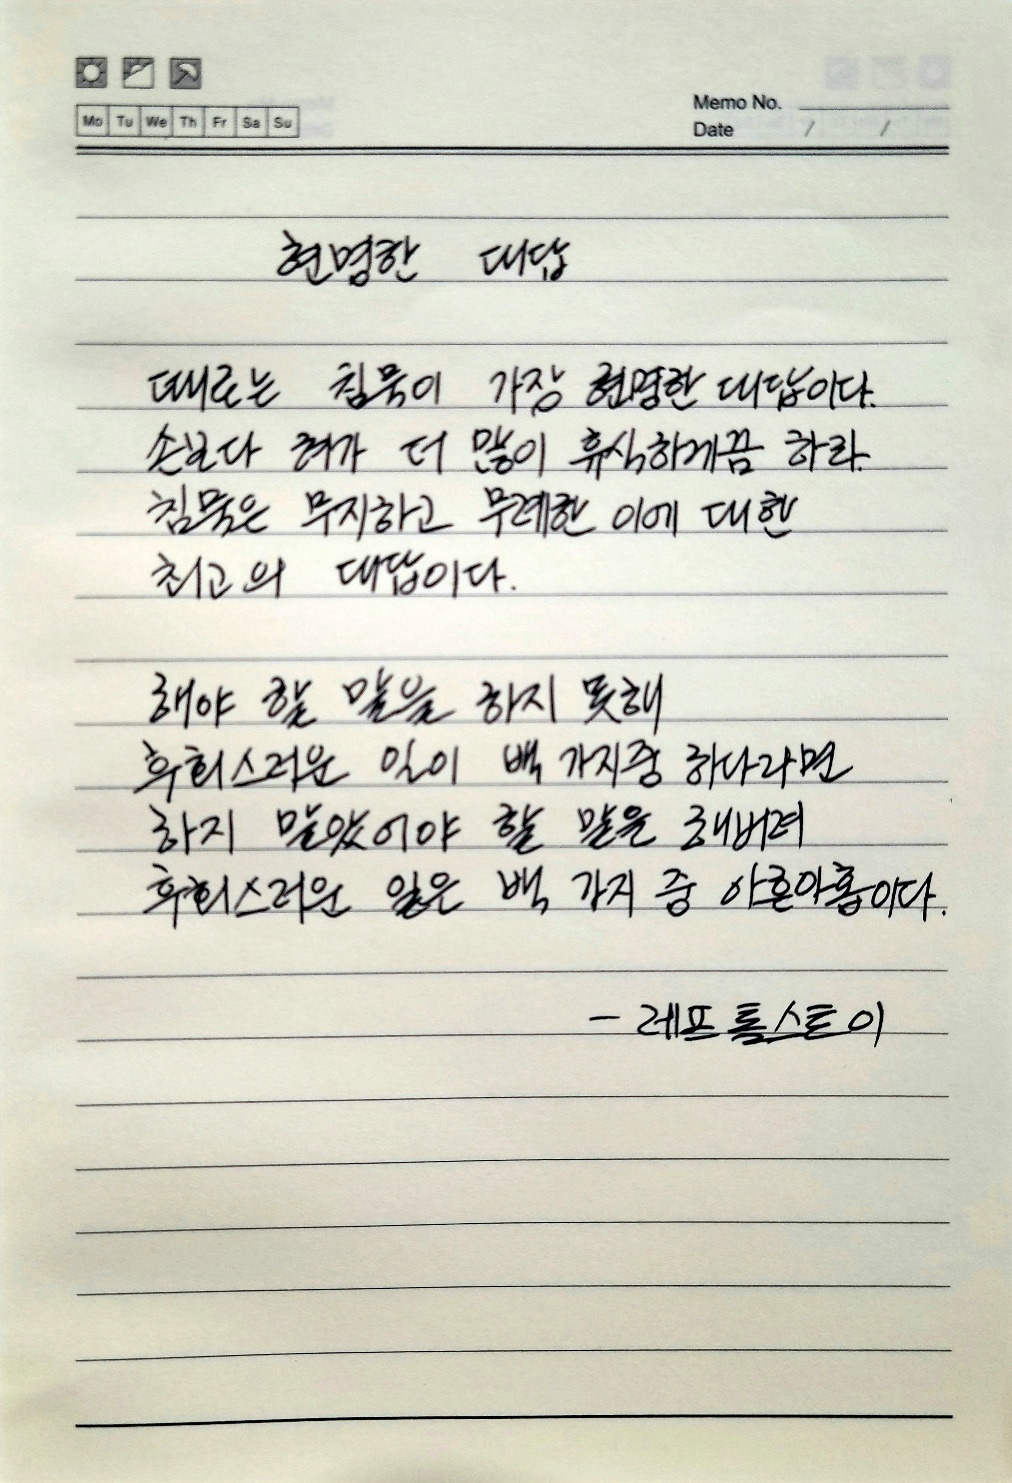 Mo Tu We Th Fr Sa Su
Memo No.
Date / /
현명한 대답
때로는 침묵이 가장 현명한 대답이다.
손보다 혀가 더 많이 휴식하게끔 하라.
침묵은 무지하고 무례한 이에 대한
최고의 대답이다.
해야 할 말을 하지 못해
후회스러운 일이 백 가지중 하나라면
하지 말았어야 할 말을 해버려
후회스러운 일은 백 가지 중 아흔아홉이다.
- 레프 톨스토이